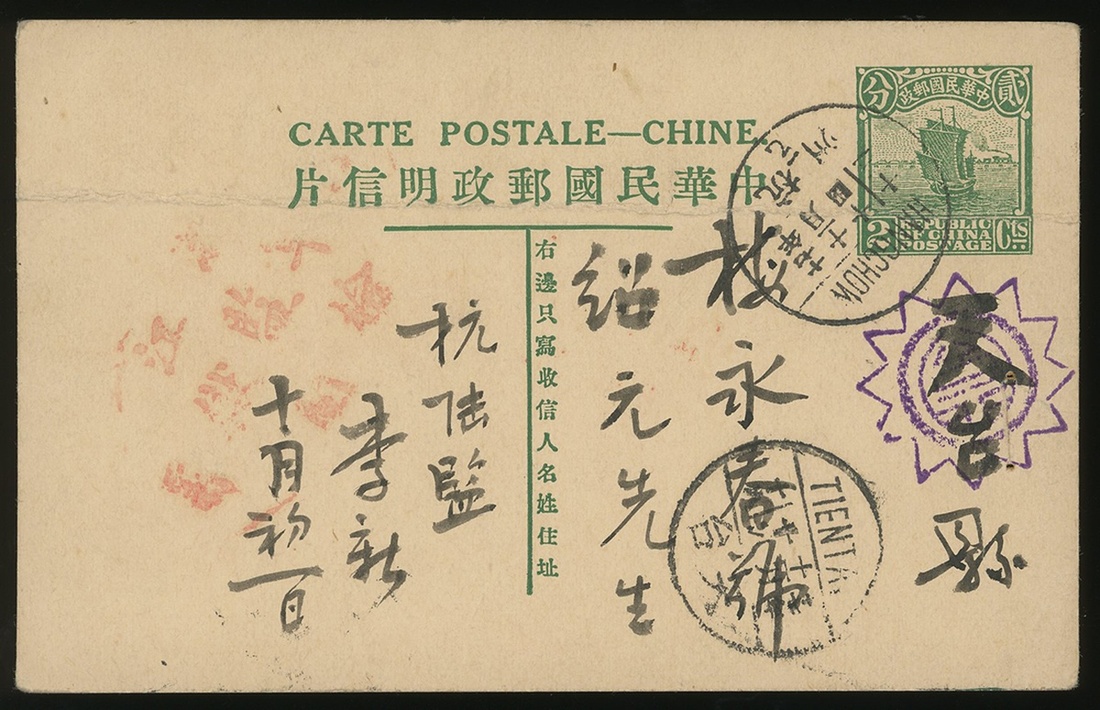 CARTE POSTALE—CHINE.
中華民國郵政明信片
中華民國郵政
貳分
2 Cts
REPUBLIC
OF CHINA
POSTAGE
HANGCHOW
杭州
天台縣
永春號
紹元先生
TIENTAI
天台
右邊只寫收信人名姓住址
杭陸監
李新
十月初一日